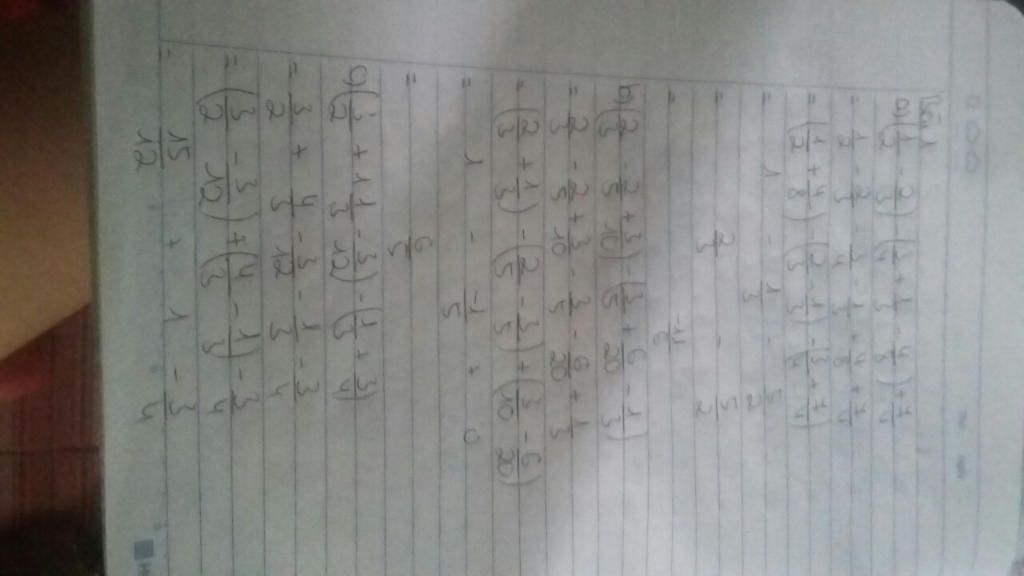 Bài 1
a) (1/2 - 2/3) - (3/4 + 1/3 - 4/8) + 7/4
= 1/2 - 2/3 - 3/4 - 1/3 + 4/8 + 7/4
= (1/2 + 4/8) - (2/3 - 1/3) - (3/4 + 7/4)
= 1 - 1/3 - 5/2
= 2/3 - 5/2
= -11/6
b) (2/3 - 2/5 + 3/10) - (3/5 + 6/20 - 1/3)
= 2/3 - 2/5 + 3/10 - 3/5 - 6/20 + 1/3
= (2/3 + 1/3) - (2/5 - 3/5) + (3/10 - 6/20)
= 1 - -1/5 + 0
= 6/5
g) (3/2 + 1 1/3 - 3/12) - (1/3 + 3/4)
= 3/2 + 4/3 - 3/12 - 1/3 - 3/4
= (3/2 - 3/12) + (4/3 - 1/3) - 3/4
= 15/12 + 1 - 3/4